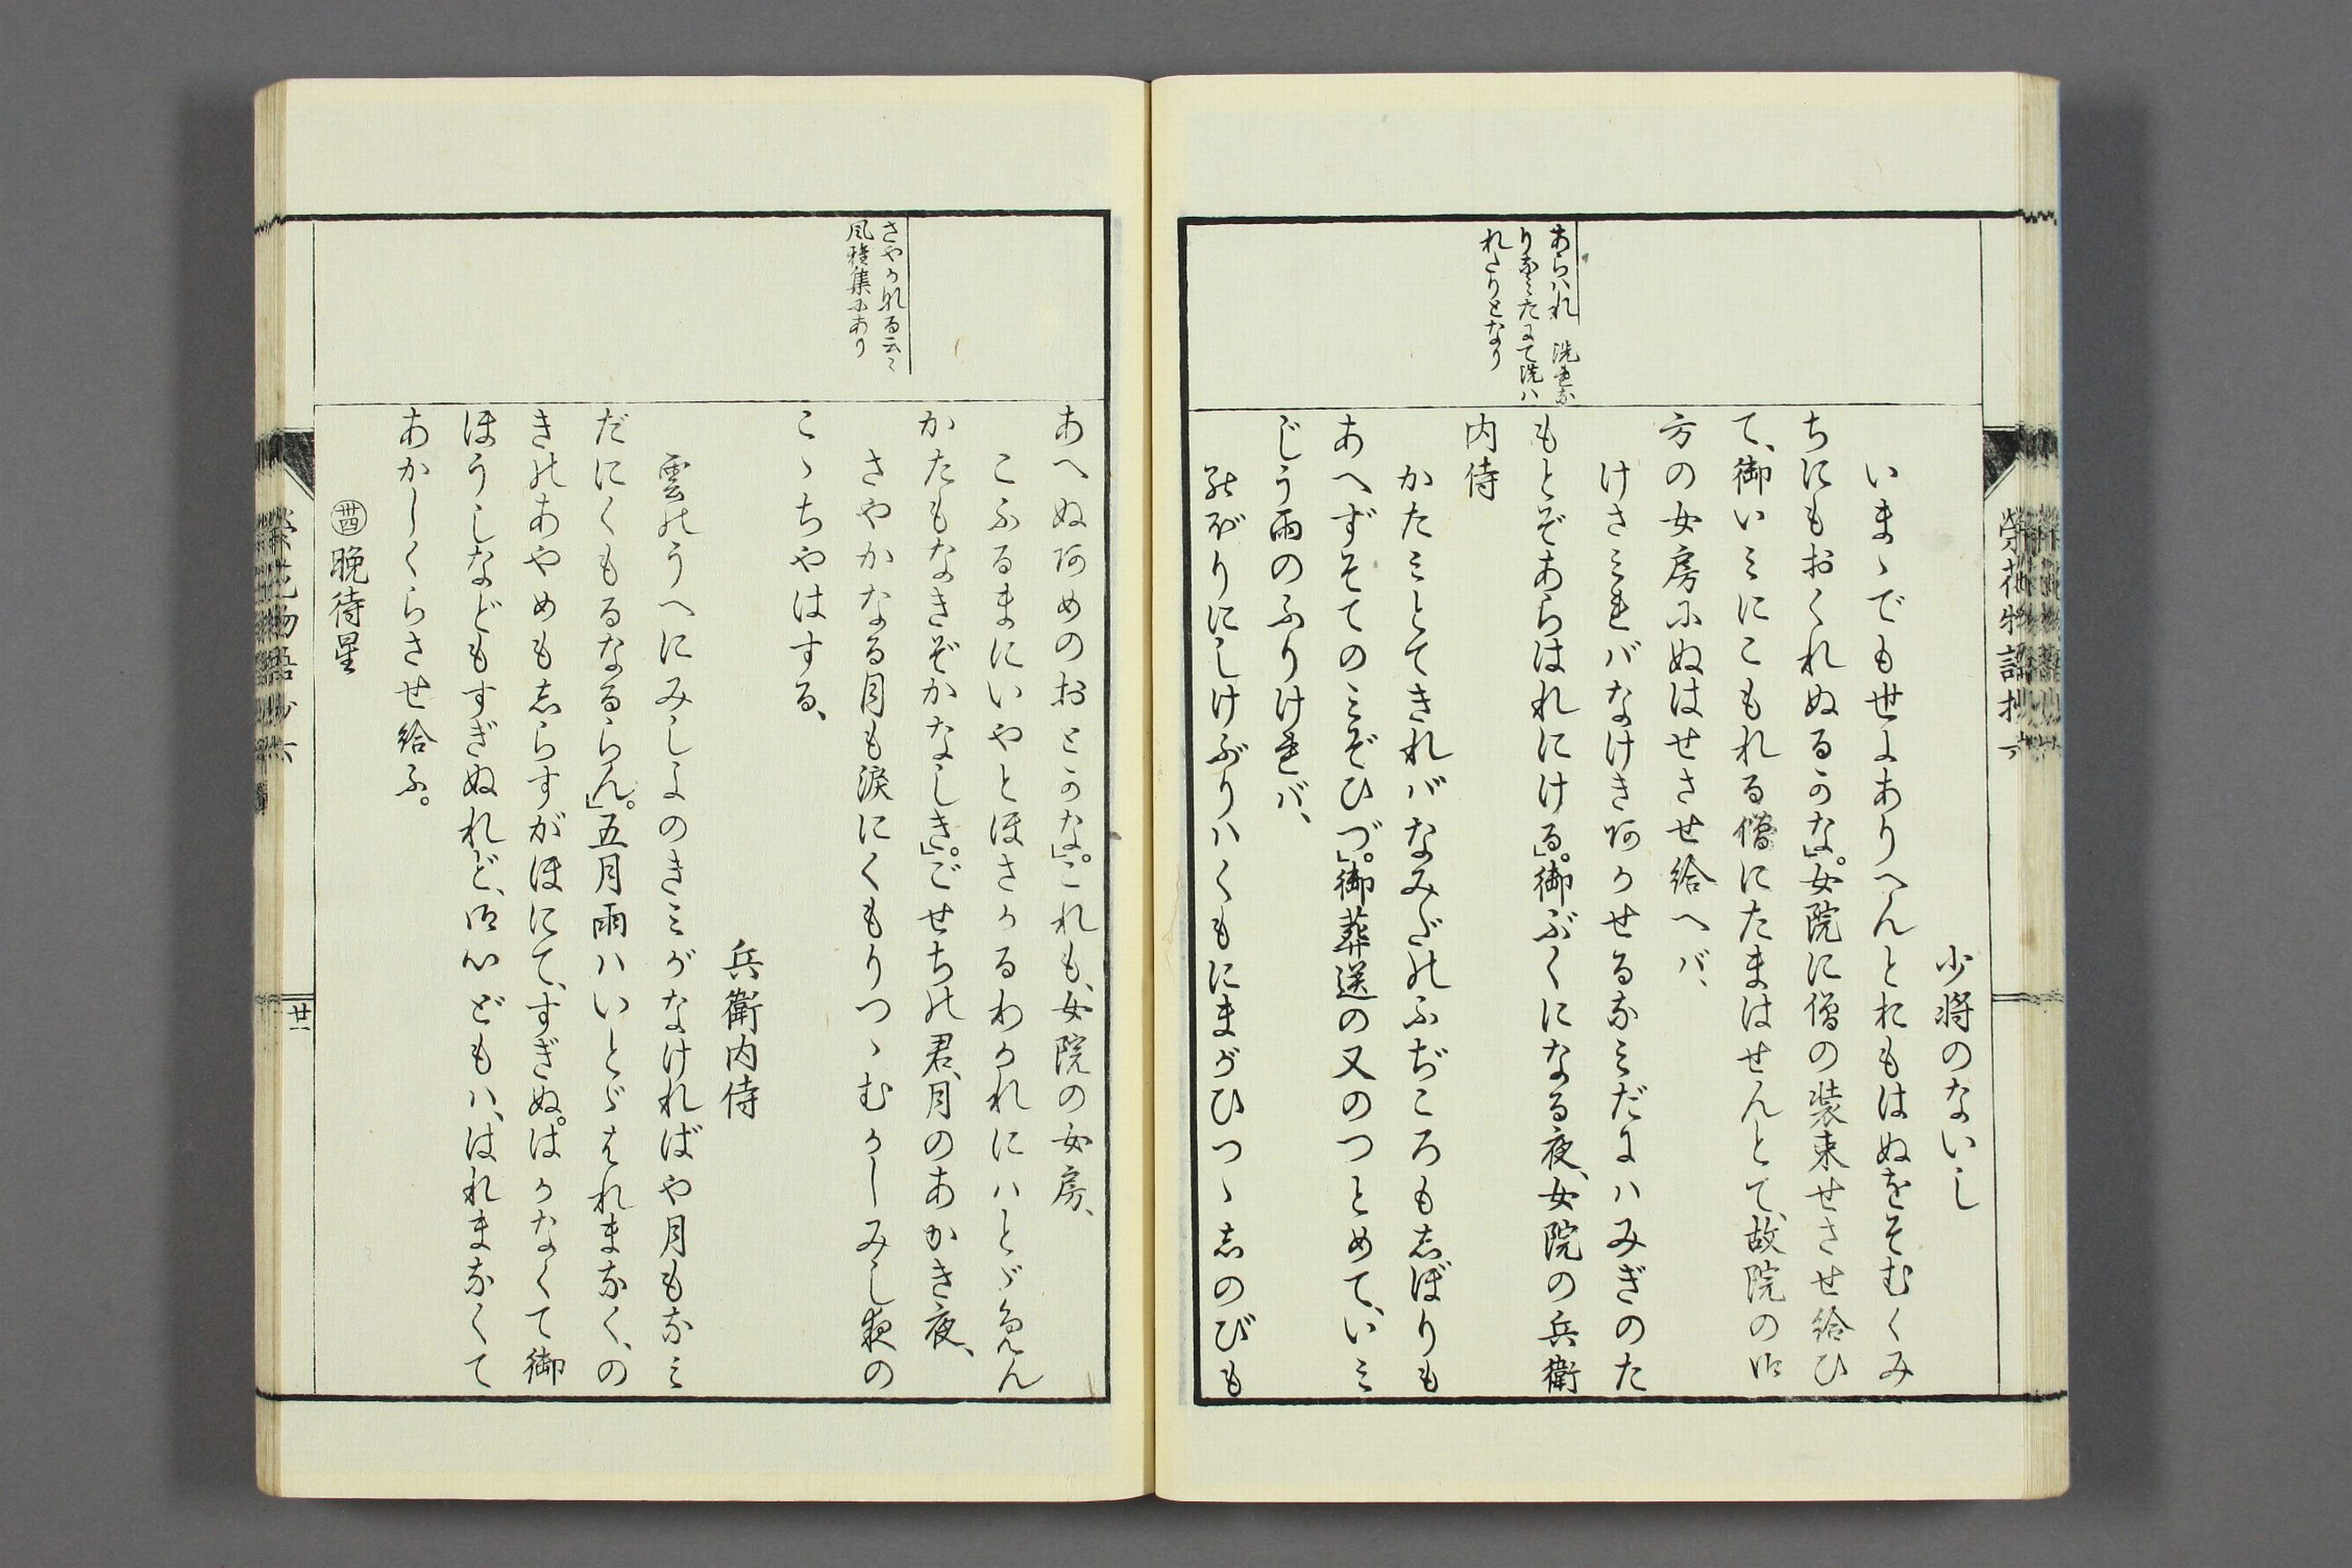 栄花物語抄
少将のないし
いまゝでも世にありへんとおもはぬをそむくみ
ちにもおくれぬるかな」。女院に僧の装束せさせ給ひ
て、御いミにこもれる僧にたまはせんとて、故院の御
方の女房にぬはせさせ給へバ、
けさミれバなけき阿かせるなミだにハみぎのた
もとぞあらはれにける」。御ぶくになる夜、女院の兵衛
内侍
かたミとてきれバなみだのふぢころも志ぼりも
あへずそてのミぞひづ」。御葬送の又のつとめて、いミ
じう雨のふりけれバ、
のぼりにしけぶりハくもにまがひつゝ志のびも
あらハれ 洗れな
りなミたにて洗ハ
れたりとなり
あへぬ阿めのおとかな」。これも、女院の女房、
こふるまにいやとほさかるわかれにハとゞめん
かたもなきぞかなしき」。ごせちの君、月のあかき夜、
さやかなる月も涙にくもりつゝむかしみし夜の
こゝちやはする、
兵衛内侍
雲のうへにみしよのきミがなければや月もなミ
だにくもるなるらん」。五月雨ハいとゞはれまなく、の
きのあやめも志らすがほにて、すぎぬ。はかなくて御
ほうしなどもすぎぬれど、御心どもハ、はれまなくて
あかしくらさせ給ふ。
㊃晩待星
さやかなる云々
風雅集にあり
廿一